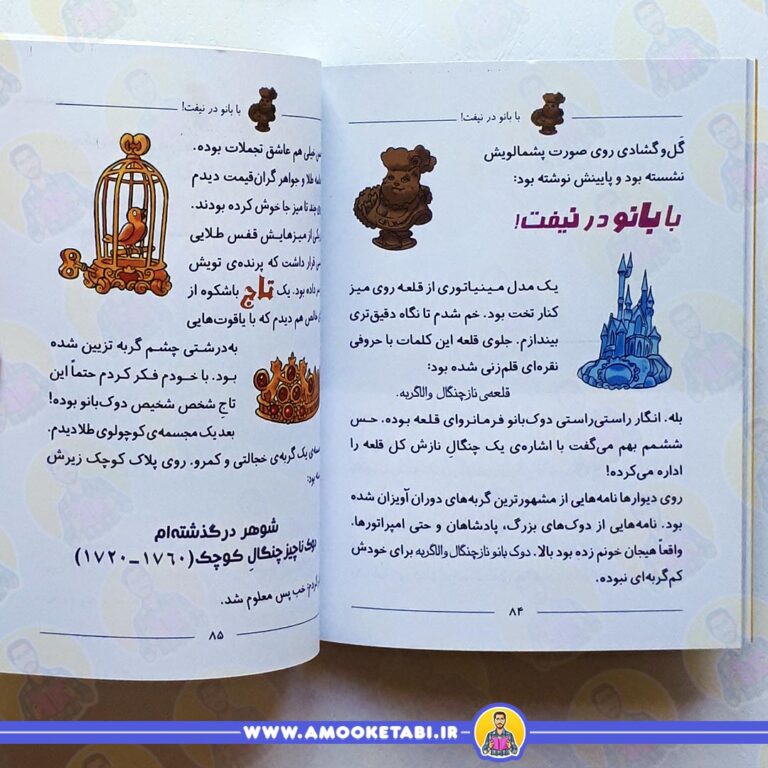 با بانو در نیفت!
گَل‌و‌گشادی روی صورت پشمالویش
نشسته بود و پایینش نوشته بود:
با بانو در نیفت!
یک مدل مینیاتوری از قلعه روی میز
کنار تخت بود. خم شدم تا نگاه دقیق‌تری
بیندازم. جلوی قلعه این کلمات با حروفی
نقره‌ای قلم‌زنی شده بود:
قلعه‌ی نازچنگال والاگربه.
بله. انگار راستی‌راستی دوک‌بانو فرمانروای قلعه بوده. حس
ششمم بهم می‌گفت با اشاره‌ی یک چنگالِ نازش کل قلعه را
اداره می‌کرده!
روی دیوارها نامه‌هایی از مشهورترین گربه‌های دوران آویزان شده
بود. نامه‌هایی از دوک‌های بزرگ، پادشاهان و حتی امپراتورها.
واقعاً هیجان خونم زده بود بالا. دوک بانو نازچنگال والاگربه برای خودش
کم‌گربه‌ای نبوده.
۸۴
با بانو در نیفت!
خیلی هم عاشق تجملات بوده.
طلا و جواهر گران‌قیمت دیدم
چند تا میز جا خوش کرده بودند.
از میزهایش قفس طلایی
قرار داشت که پرنده‌ی تویش
داده بود. یک تاج باشکوه از
هم دیدم که با یاقوت‌هایی
به‌درشتی چشم گربه تزیین شده
بود. با خودم فکر کردم حتماً این
تاجِ شخص شخیص دوک‌بانو بوده!
بعد یک مجسمه‌ی کوچولوی طلا دیدم.
یک گربه‌ی خجالتی و کمرو. روی پلاک کوچک زیرش
شوهر درگذشته‌ام
ناچیز چنگالِ کوچک (۱۷۶۰-۱۷۲۰)
خب پس معلوم شد.
۸۵
WWW.AMOOKETABI.IR